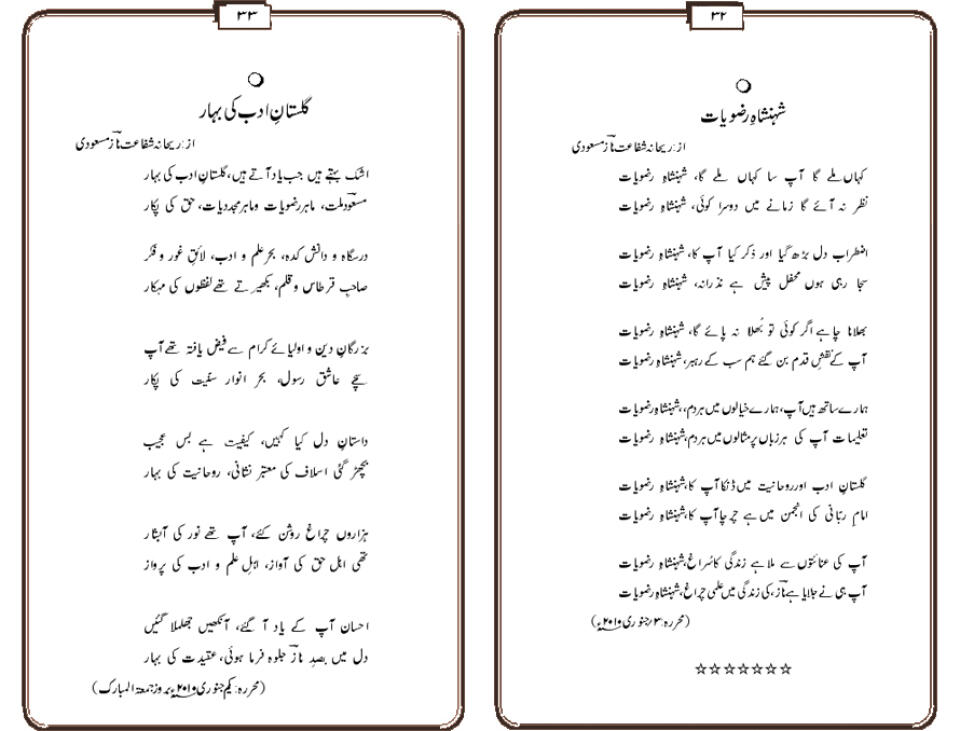 ۳۲
شہنشاہِ رضویات
از: ریحانہ شفاعت نازؔ مسعودی
کہاں ملے گا آپ سا کہاں ملے گا، شہنشاہِ رضویات
نظر نہ آئے گا زمانے میں دوسرا کوئی، شہنشاہِ رضویات
اضطراب دل بڑھ گیا اور ذکر کیا آپ کا، شہنشاہِ رضویات
سجا رہی ہوں محفل پیش ہے نذرانہ، شہنشاہِ رضویات
بھلانا چاہے اگر کوئی تو بُھلا نہ پائے گا، شہنشاہِ رضویات
آپ کے نقشِ قدم بن گئے ہم سب کے رہبر، شہنشاہِ رضویات
ہمارے ساتھ ہیں آپ، ہمارے خیالوں میں ہردم، شہنشاہِ رضویات
تعلیمات آپ کی ہر زباں پر مثالوں میں ہردم، شہنشاہِ رضویات
گلستانِ ادب اور روحانیت میں ڈنکا آپ کا، شہنشاہِ رضویات
امام ربّانی کی انجمن میں ہے چرچا آپ کا، شہنشاہِ رضویات
آپ کی عنائتوں سے ملا ہے زندگی کا سُراغ، شہنشاہِ رضویات
آپ ہی نے جلایا ہے نازؔ، کی زندگی میں علمی چراغ، شہنشاہِ رضویات
(محررہ: ۳؍جنوری ۲۰۱۰ء)
☆☆☆☆☆☆☆
۳۳
گلستانِ ادب کی بہار
از: ریحانہ شفاعت نازؔ مسعودی
اشک بہتے ہیں جب یاد آتے ہیں، گلستانِ ادب کی بہار
مسعودِؔ ملت، ماہرِ رضویات وماہرِ مجددیات، حق کی پکار
درسگاہ و دانش کدہ، بحرِ علم و ادب، لائقِ غور و فکر
صاحبِ قرطاس و قلم، بکھیرتے تھے لفظوں کی مہکار
بزرگانِ دین و اولیائے کرام سے فیض یافتہ تھے آپ
سچے عاشق رسول، بحر انوار سنیت کی پکار
داستانِ دل کیا کہیں، کیفیت ہے بس عجیب
بچھڑ گئی اسلاف کی معتبر نشانی، روحانیت کی بہار
ہزاروں چراغ روشن کئے، آپ تھے نور کی آبشار
تھی اہل حق کی آواز، اہلِ علم و ادب کی پرواز
احسان آپ کے یاد آ گئے، آنکھیں جھلملا گئیں
دل میں بصدِ نازؔ جلوہ فرما ہوئی، عقیدت کی بہار
(محررہ: یکم جنوری ۲۰۱۰ء بروز جمعۃ المبارک)